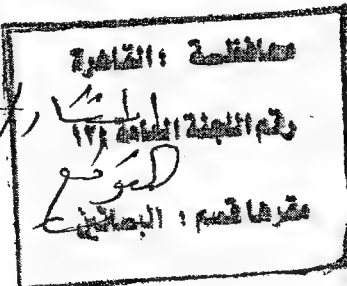 محافظة : القاهرة
رقم اللجنة العامة ١٢١
مقرها قسم : البساتين